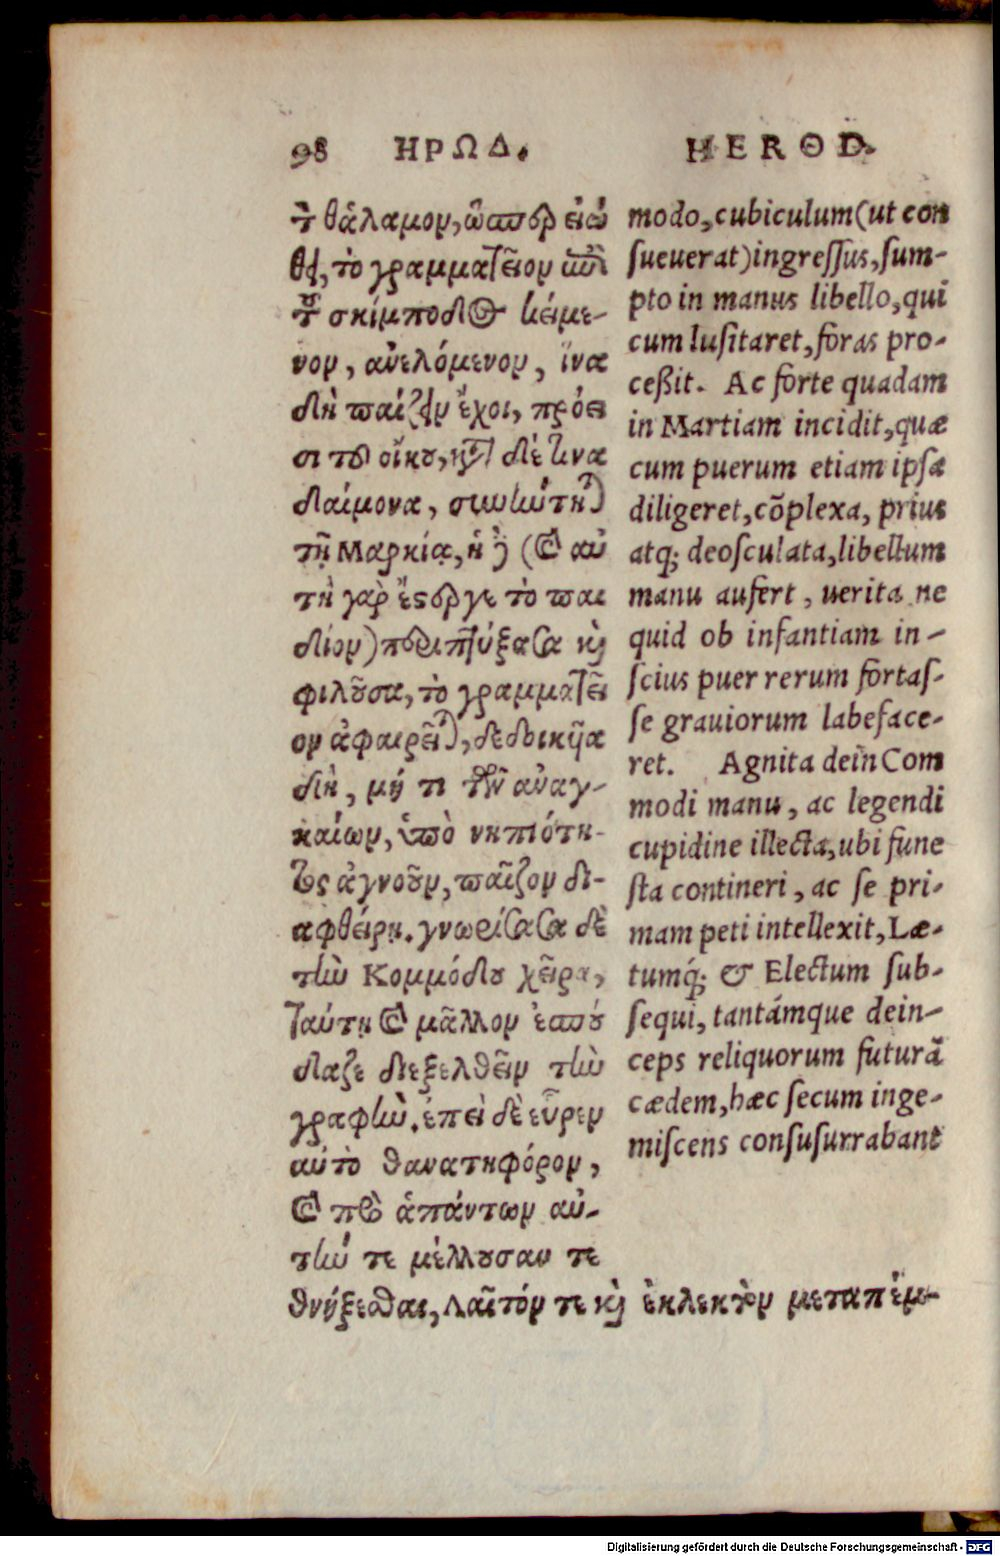 98 ΗΡΩΔ.
τ̀ θάλαμον, ὥσπερ εἰώ
θει, τὸ γραμματεῖον ἐπὶ
τοῦ σκίμποδος κείμε-
νον, ἀνελόμενον, ἵνα
δὴ παίζειν ἔχοι, πρόει
σι τοῦ οἴκου, κατὰ δέ τινα
δαίμονα, συνκώτηται
τῇ Μαρκίᾳ, ἡ δὲ (καὶ αὐ
τὴ γὰρ ἔστεργε τὸ παι
δίον) περιπτύξασα καὶ
φιλοῦσα, τὸ γραμματεῖ
ον ἀφαιρεῖται, δεδοικυῖα
δὴ, μή τι τῶν ἀναγ-
καίων, ὑπὸ νηπιότη-
τος ἀγνοοῦν, παῖζον δι-
αφθείρῃ. γνωρίσασα δὲ
τὴν Κομμόδου χεῖρα,
ταύτῃ καὶ μᾶλλον ἐσπού
δαζε διεξελθεῖν τὴν
γραφήν. ἐπεὶ δὲ εὗρεν
αὐτὸ θανατηφόρον,
καὶ πρὸ ἁπάντων αὐ-
τήν τε μέλλουσαν τε
θνήξεσθαι, Λαῖτόν τε καὶ ἐκλεκτὸν μεταπέμ-
HEROD.
modo, cubiculum (ut con
sueuerat) ingressus, sum-
pto in manus libello, qui
cum lusitaret, foras pro-
ceßit. Ac forte quadam
in Martiam incidit, quæ
cum puerum etiam ipsa
diligeret, cõplexa, prius
atq; deosculata, libellum
manu aufert, uerita ne
quid ob infantiam in-
scius puer rerum fortas-
se grauiorum labeface-
ret. Agnita dein Com
modi manu, ac legendi
cupidine illecta, ubi fune
sta contineri, ac se pri-
mam peti intellexit, Læ-
tumq́; & Electum sub-
sequi, tantámque dein-
ceps reliquorum futurã
cædem, hæc secum inge-
miscens consusurrabant
Digitalisierung gefördert durch die Deutsche Forschungsgemeinschaft - DFG